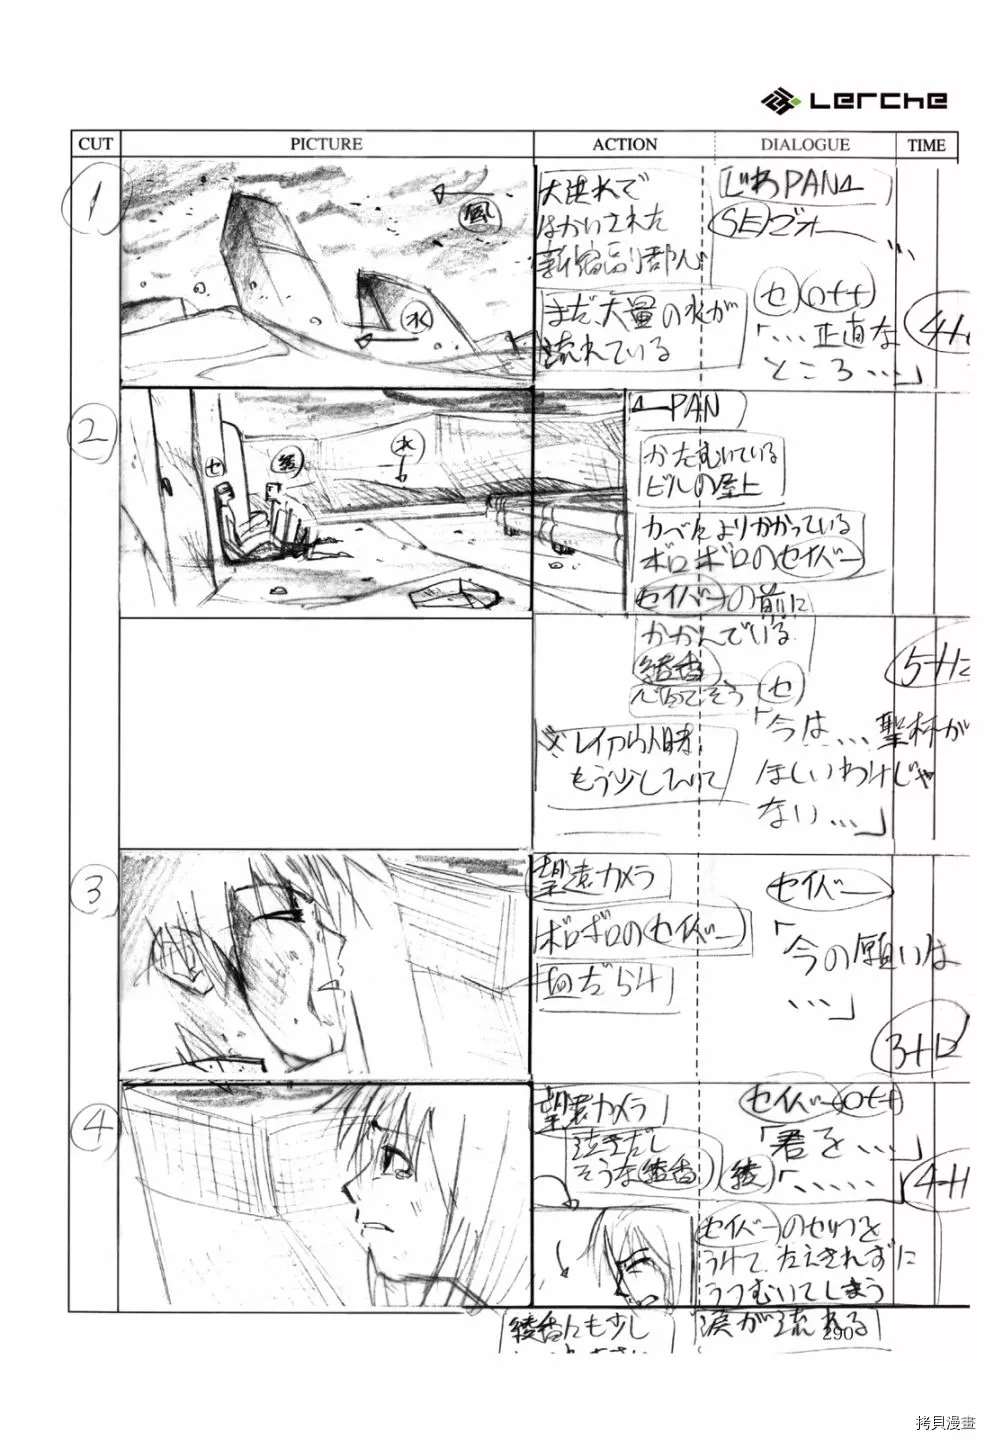 Lerche
CUT
PICTURE
ACTION
DIALOGUE
TIME
1
風
水
大洪水で
はかいされた
新宿
まだ、大量の水が
流れている
じわPAN
SE ゴオー
セ off
「…正直な
ところ…」
2
セ
綾
水
PAN
かたむいている
ビルの屋上
かべによりかかっている
ボロボロのセイバー
セイバーの前に
かがんでいる
綾香
5+12
セ
「今は…聖杯が
ほしいわけじゃ
ない…」
もう少し
3
望遠カメラ
ボロボロのセイバー
血だらけ
セイバー
「今の願いは
…」
3+12
4
望遠カメラ
泣きだし
そうな綾香
セイバー off
「君を…」
綾「……」
セイバーのセリフを
うけて、たえきれずに
うつむいてしまう
綾香にも少し
涙が流れる
290
拷貝漫畫